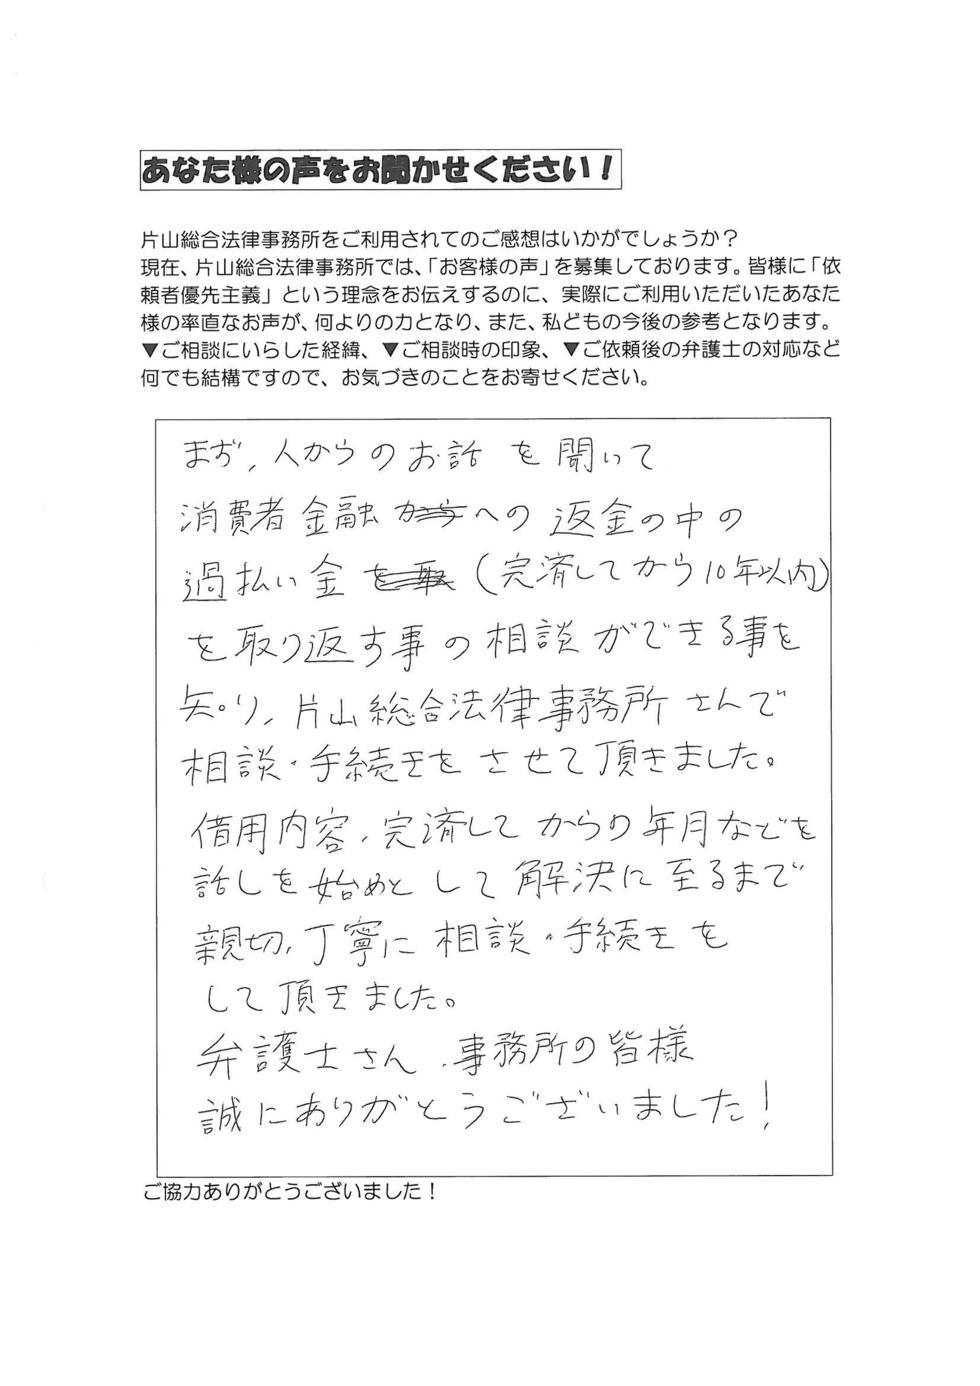 あなた様の声をお聞かせください！
片山総合法律事務所をご利用されてのご感想はいかがでしょうか？
現在、片山総合法律事務所では、「お客様の声」を募集しております。皆様に「依
頼者優先主義」という理念をお伝えするのに、実際にご利用いただいたあなた
様の率直なお声が、何よりの力となり、また、私どもの今後の参考となります。
▼ご相談にいらした経緯、▼ご相談時の印象、▼ご依頼後の弁護士の対応など
何でも結構ですので、お気づきのことをお寄せください。
まず、人からのお話を聞いて
消費者金融からへの返金の中の
過払い金を取(完済してから10年以内)
を取り返す事の相談ができる事を
知り、片山総合法律事務所さんで
相談・手続きをさせて頂きました。
借用内容、完済してからの年月などを
話しを始めとして解決に至るまで
親切、丁寧に相談・手続きを
して頂きました。
弁護士さん、事務所の皆様
誠にありがとうございました！
ご協力ありがとうございました！